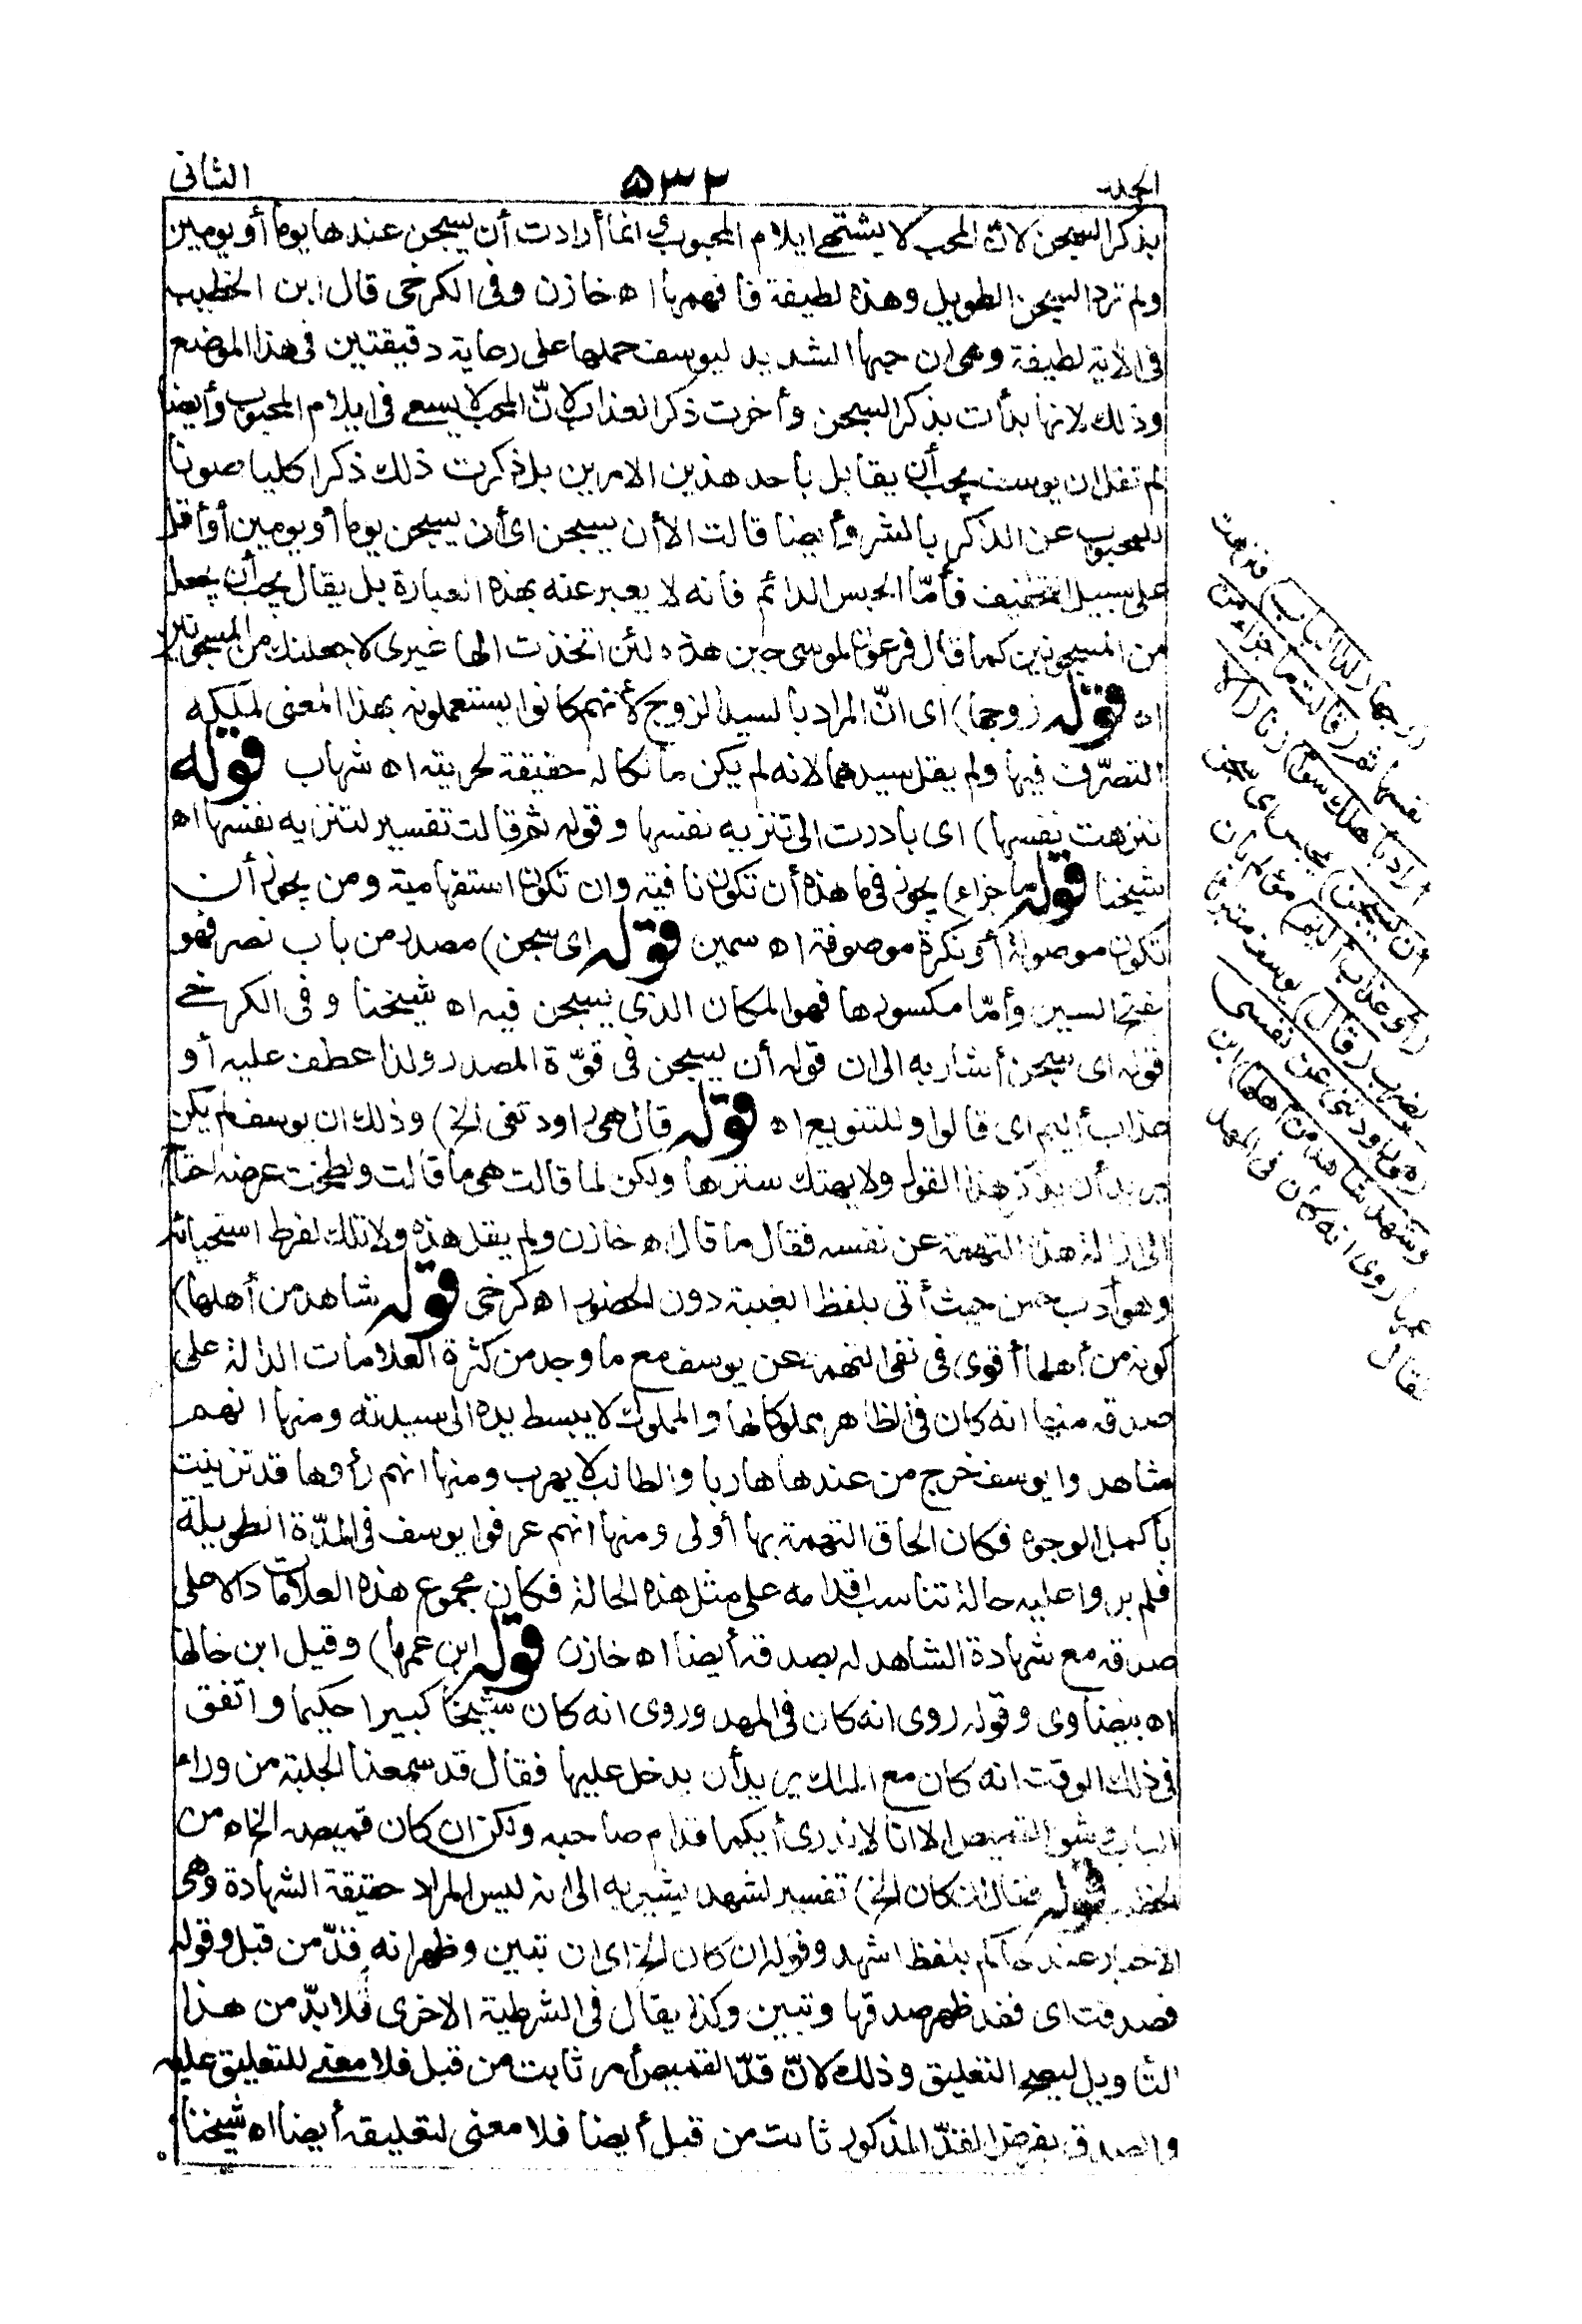 الجلد ۵۳۲ الثانى
بذكر السجن لان المحب لا يشتهى ايلام المحبوب وانما أرادت أن يسجن عندها يوما أو يومين
ولم ترد السجن الطويل وهذه لطيفة فافهمها اه خازن وفى الكرخى قال ابن الخطيب
فى الآية لطيفة وهى ان حبها الشديد ليوسف حملها على رعاية دقيقتين فى هذا الموضع
وذلك لانها بدأت بذكر السجن وأخرت ذكر العذاب لانّ المحب لا يسعى فى ايلام المحبوب وأيضا
لم تقل ان يوسف يجب أن يقابل بأحد هذين الامرين بل ذكرت ذلك ذكرا كليا صونا
للمحبوب عن الذكر بالشر وأيضا قالت الا أن يسجن اى أن يسجن يوما أو يومين أو أقل
على سبيل التخفيف فأمّا الحبس الدائم فانه لا يعبر عنه بهذه العبارة بل يقال يجب أن يجعل
من المسجونين كما قال فرعون لموسى حين هدده لئن اتخذت الها غيرى لاجعلنك من المسجونين
اه قوله زوجها) اى انّ المراد بالسيد الزوج لأنهم كانوا يستعملونه بهذا المعنى لملكه
التصرّف فيها ولم يقل سيدهما لانه لم يكن مالكا له حقيقة لحريته اه شهاب قوله
فنزهت نفسها) اى بادرت الى تنزيه نفسها وقوله ثم قالت تفسير لتنزيه نفسها اه
شيخنا قوله ما جزاء) يجوز فى ما هذه أن تكون نافية وان تكون استفهامية ومن يجوز أن
تكون موصولة أو نكرة موصوفة اه سمين قوله اى سجن) مصدر من باب نصر فهو
بفتح السين وأمّا مكسورها فهو المكان الذى يسجن فيه اه شيخنا وفى الكرخى
قوله اى سجن أشار به الى ان قوله أن يسجن فى قوّة المصدر ولذا عطف عليه أو
عذاب أليم اى قالوا وللتنويع اه قوله قال هى راودتنى الخ) وذلك ان يوسف لم يكن
يريد أن يذكر هذا القول ولا يهتك سترها ولكن لما قالت هى ما قالت ولطخت عرضه احتاج
الى ازالة هذه التهمة عن نفسه فقال ما قال اه خازن ولم يقل هذه ولا تلك لفرط استحيائه
وهو أدب حسن حيث أتى بلفظ الغيبة دون الحضور اه كرخى قوله شاهد من أهلها)
كونه من أهلها أقوى فى نفى التهمة عن يوسف مع ما وجد من كثرة العلامات الدالة على
صدقه منها انه كان فى الظاهر مملوكا لها والمملوك لا يبسط يده الى سيدته ومنها انهم
شاهدوا يوسف خرج من عندها هاربا والطالب لا يهرب ومنها انهم رأوها قد تزينت
بأكمل الوجوه فكان الحاق التهمة بها أولى ومنها انهم عرفوا يوسف فى المدّة الطويلة
فلم يروا عليه حالة تناسب اقدامه على مثل هذه الحالة فكان مجموع هذه العلامات دالا على
صدقه مع شهادة الشاهد له بصدقه أيضا اه خازن قوله ابن عمها) وقيل ابن خالها
اه بيضاوى وقوله روى انه كان فى المهد وروى انه كان شيخا كبيرا حكيما واتفق
فى ذلك الوقت انه كان مع الملك يريد أن يدخل عليها فقال قد سمعنا الجلبة من وراء
الباب وشق القميص الا انا لا ندرى أيكما قدام صاحبه ولكن ان كان قميصه الخ اه من
الخطيب قوله فقال ان كان الخ) تفسير لشهد يشير به الى انه ليس المراد حقيقة الشهادة وهى
الاخبار عند حاكم بلفظ اشهد وقوله ان كان الخ اى ان تبين وظهر انه قدّ من قبل وقوله
فصدقت اى فقد ظهر صدقها وتبين وكذا يقال فى الشرطية الاخرى فلا بدّ من هذا
التأويل ليصح التعليق وذلك لانّ قدّ القميص أمر ثابت من قبل فلا معنى للتعليق عليه
والصدق بفرض القدّ المذكور ثابت من قبل أيضا فلا معنى لتعليقه أيضا اه شيخنا
زوجها (لدا الباب) فنزهت
نفسها ثم (قالت ما جزاء من
أراد بأهلك سوأ) زنا (الا
أن يسجن) يحبس اى سجن
(أو عذاب أليم) مؤلم بأن
يضرب (قال) يوسف متبرئا
(هى راودتنى عن نفسى
وشهد شاهد من أهلها) ابن
عمها روى انه كان فى المهد
فقال